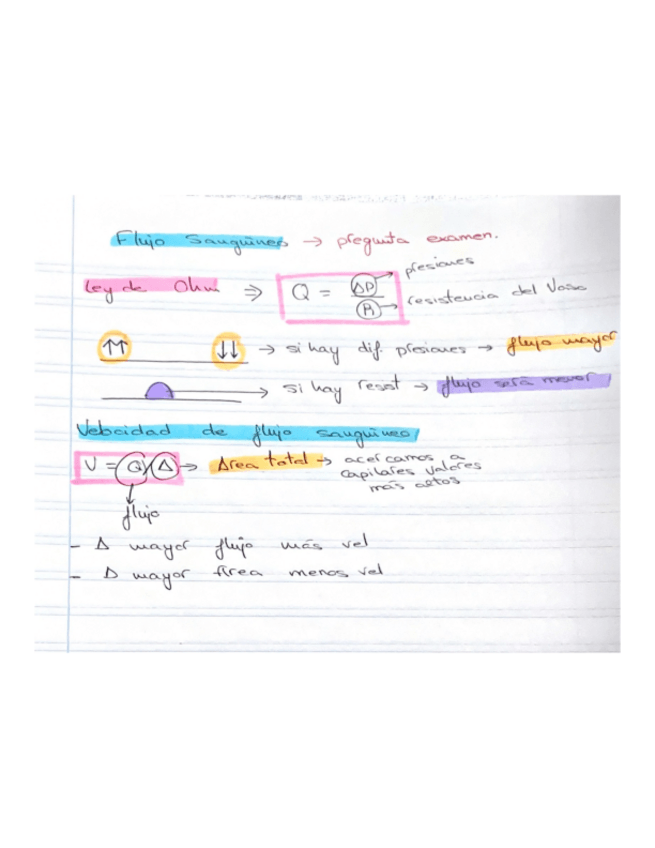 Flujo Sanguíneo → pregunta examen.
Ley de Ohm ⇒ Q = ΔP / R
presiones
resistencia del Vaso
↑↑ ↓↓ → si hay dif. presiones → flujo mayor
→ si hay resist → flujo será menor
Velocidad de flujo sanguíneo
V = Q/A → Area total → acercamos a
capilares valores
más altos
flujo
- Δ mayor flujo más vel
- Δ mayor Área menos vel